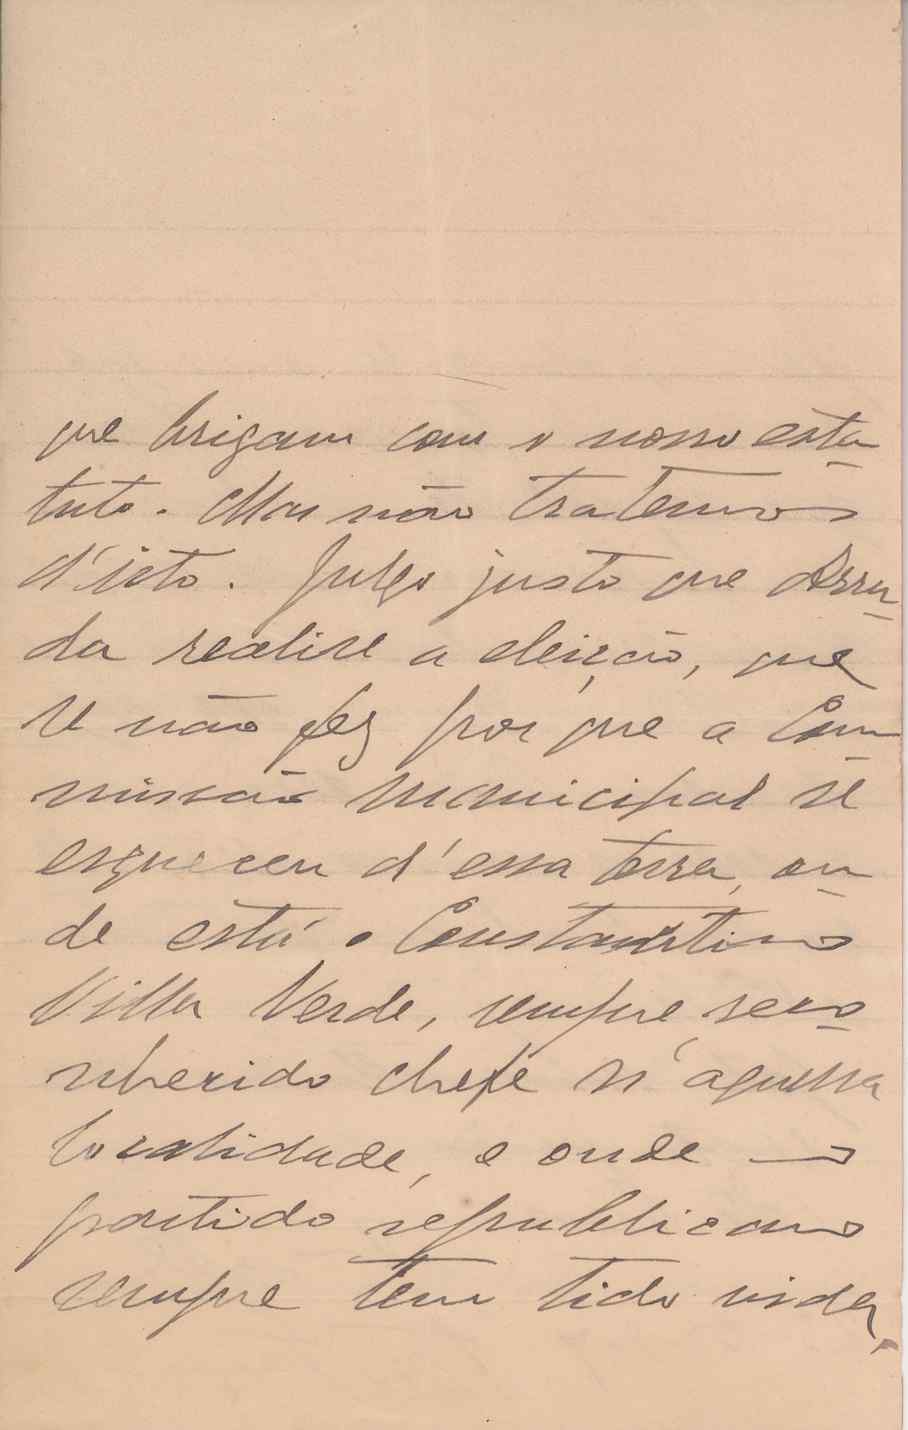 que brigam com o nosso esta-
tuto. Mas não tratemos
d'isto. Julgo justo que Arru-
da realise a eleição, que
se não fez por que a Com-
missão Municipal se
esqueceu d'essa terra, on-
de está o Constantino
Villa Verde, sempre reco-
nhecido chefe n'aquella
localidade, e onde o
partido republicano
sempre tem tido vida,